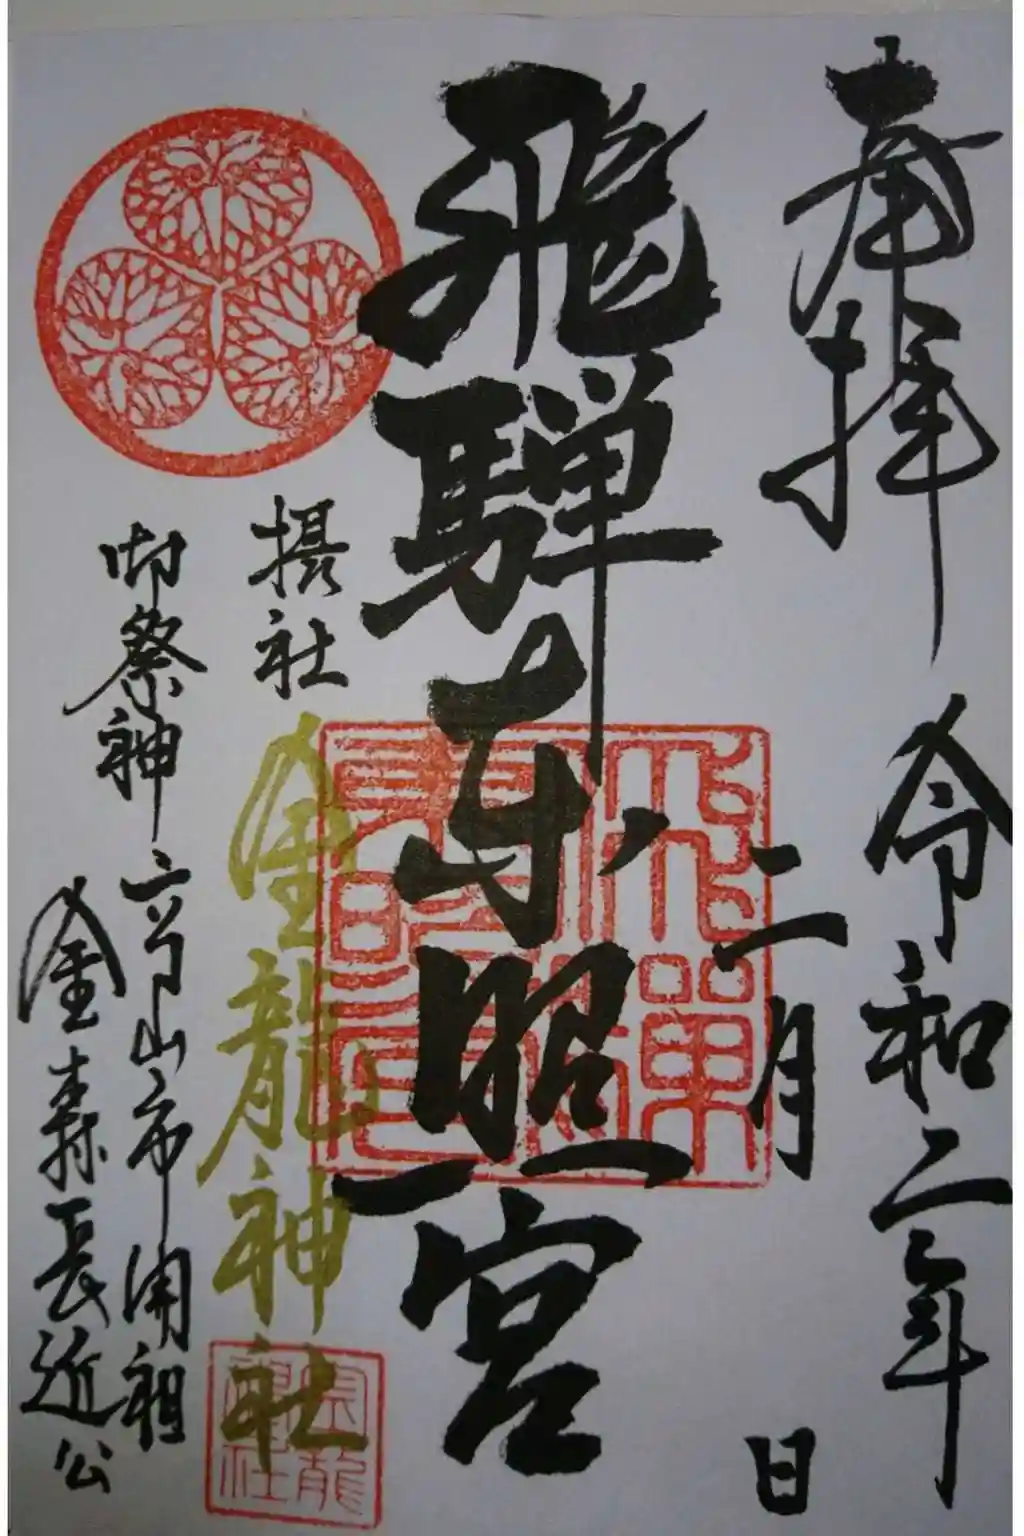 奉拝
令和二年
二月
日
飛騨東照宮
摂社
金龍神社
御祭神
高山市開祖
金森長近公
飛騨東照宮
金龍神社